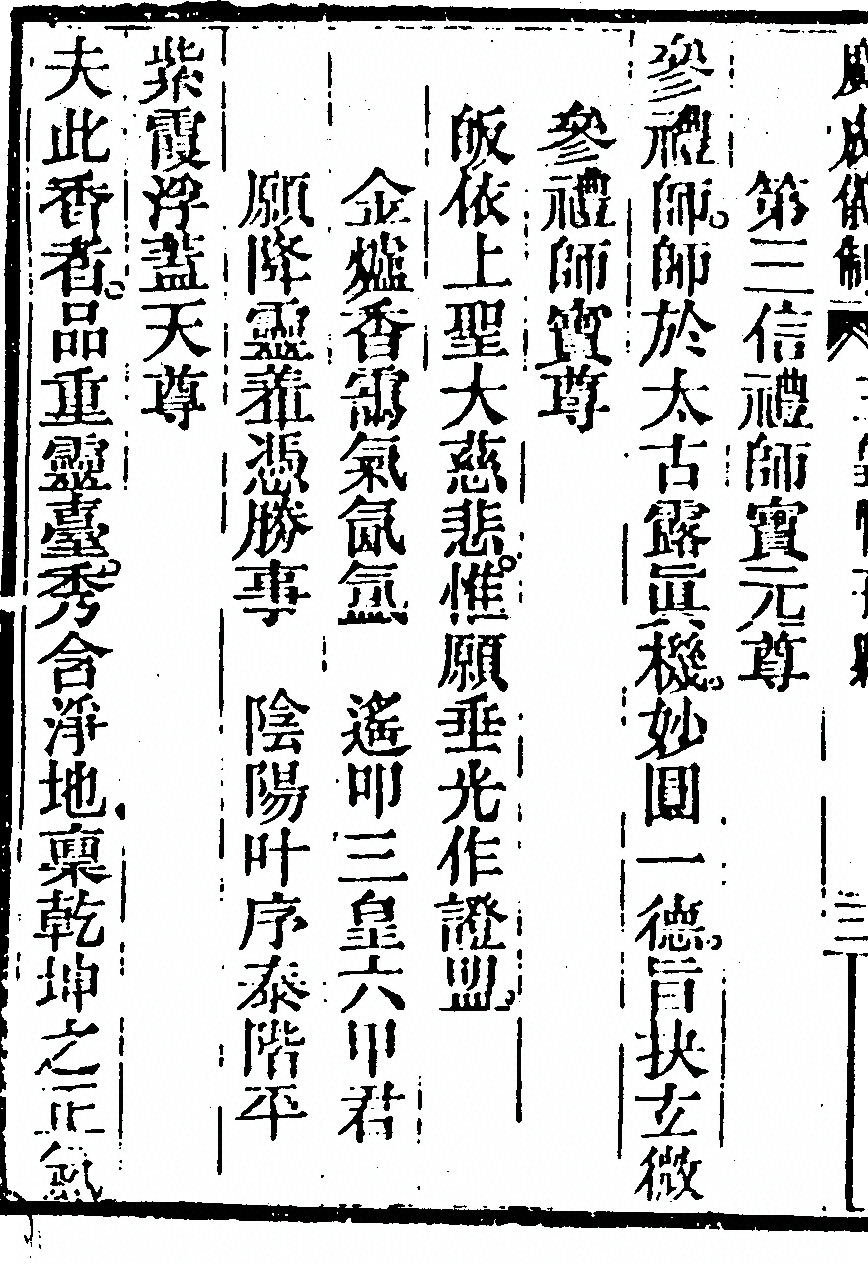 廣成儀制
三
第三信禮師寶元尊
參禮師。師於太古露眞機。妙圓一德。旨抉玄微
參禮師寶尊
皈依上聖大慈悲。惟願垂光作證盟。
金爐香靄氣氤氳　遙叩三皇六甲君
願降靈蓍憑勝事　陰陽叶序泰階平
紫霞浮蓋天尊
夫此香者。品重靈臺。秀含淨地稟乾坤之正氣